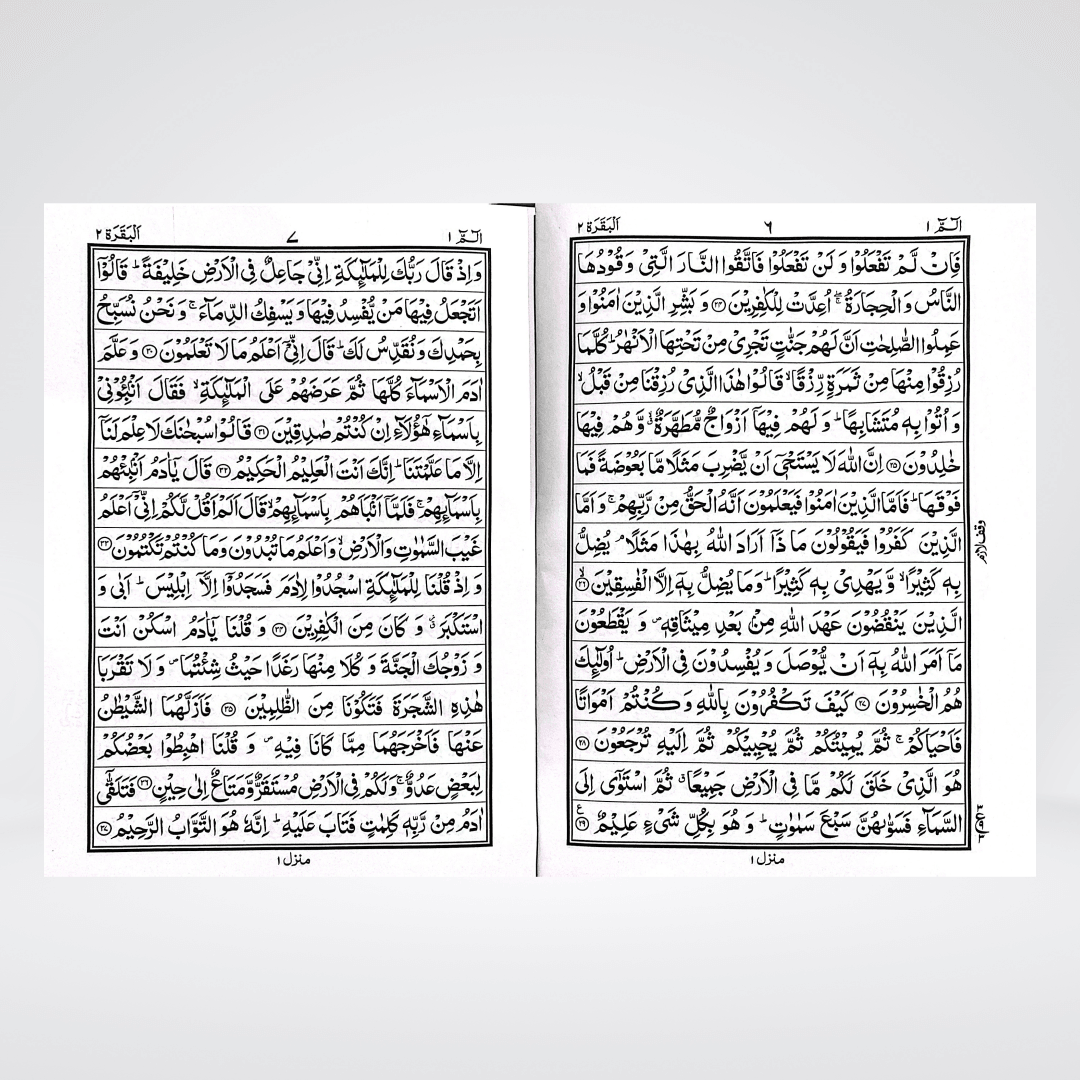 الٓمّٓ ١
٦
اَلْبَقَرَة ٢
فَاِنْ لَّمْ تَفْعَلُوْا وَ لَنْ تَفْعَلُوْا فَاتَّقُوا النَّارَ الَّتِیْ وَ قُوْدُهَا
النَّاسُ وَ الْحِجَارَةُ ۖۚ اُعِدَّتْ لِلْكٰفِرِیْنَ ۝۲۴ وَ بَشِّرِ الَّذِیْنَ اٰمَنُوْا وَ
عَمِلُوا الصّٰلِحٰتِ اَنَّ لَهُمْ جَنّٰتٍ تَجْرِیْ مِنْ تَحْتِهَا الْاَنْهٰرُ ؕ كُلَّمَا
رُزِقُوْا مِنْهَا مِنْ ثَمَرَةٍ رِّزْقًا ۙ قَالُوْا هٰذَا الَّذِیْ رُزِقْنَا مِنْ قَبْلُ ۙ
وَ اُتُوْا بِهٖ مُتَشَابِهًا ؕ وَ لَهُمْ فِیْهَاۤ اَزْوَاجٌ مُّطَهَّرَةٌ ۙۗ وَّ هُمْ فِیْهَا
خٰلِدُوْنَ ۝۲۵ اِنَّ اللّٰهَ لَا یَسْتَحْیٖۤ اَنْ یَّضْرِبَ مَثَلًا مَّا بَعُوْضَةً فَمَا
فَوْقَهَا ؕ فَاَمَّا الَّذِیْنَ اٰمَنُوْا فَیَعْلَمُوْنَ اَنَّهُ الْحَقُّ مِنْ رَّبِّهِمْ ۚ وَ اَمَّا
الَّذِیْنَ كَفَرُوْا فَیَقُوْلُوْنَ مَا ذَاۤ اَرَادَ اللّٰهُ بِهٰذَا مَثَلًا ۘ یُضِلُّ
وقف لازم
بِهٖ كَثِیْرًا ۙ وَّ یَهْدِیْ بِهٖ كَثِیْرًا ؕ وَ مَا یُضِلُّ بِهٖۤ اِلَّا الْفٰسِقِیْنَ ۝۲۶ۙ
الَّذِیْنَ یَنْقُضُوْنَ عَهْدَ اللّٰهِ مِنْۢ بَعْدِ مِیْثَاقِهٖ ۪ وَ یَقْطَعُوْنَ
مَاۤ اَمَرَ اللّٰهُ بِهٖۤ اَنْ یُّوْصَلَ وَ یُفْسِدُوْنَ فِی الْاَرْضِ ؕ اُولٰٓىِٕكَ
هُمُ الْخٰسِرُوْنَ ۝۲۷ كَیْفَ تَكْفُرُوْنَ بِاللّٰهِ وَ كُنْتُمْ اَمْوَاتًا
فَاَحْیَاكُمْ ۚ ثُمَّ یُمِیْتُكُمْ ثُمَّ یُحْیِیْكُمْ ثُمَّ اِلَیْهِ تُرْجَعُوْنَ ۝۲۸
هُوَ الَّذِیْ خَلَقَ لَكُمْ مَّا فِی الْاَرْضِ جَمِیْعًا ۗ ثُمَّ اسْتَوٰۤی اِلَی
السَّمَآءِ فَسَوّٰىهُنَّ سَبْعَ سَمٰوٰتٍ ؕ وَ هُوَ بِكُلِّ شَیْءٍ عَلِیْمٌ ۝۲۹ع
منزل ١
الٓمّٓ ١
٧
اَلْبَقَرَة ٢
وَ اِذْ قَالَ رَبُّكَ لِلْمَلٰٓىِٕكَةِ اِنِّیْ جَاعِلٌ فِی الْاَرْضِ خَلِیْفَةً ؕ قَالُوْۤا
اَتَجْعَلُ فِیْهَا مَنْ یُّفْسِدُ فِیْهَا وَ یَسْفِكُ الدِّمَآءَ ۚ وَ نَحْنُ نُسَبِّحُ
بِحَمْدِكَ وَ نُقَدِّسُ لَكَ ؕ قَالَ اِنِّیْۤ اَعْلَمُ مَا لَا تَعْلَمُوْنَ ۝۳۰ وَ عَلَّمَ
اٰدَمَ الْاَسْمَآءَ كُلَّهَا ثُمَّ عَرَضَهُمْ عَلَی الْمَلٰٓىِٕكَةِ ۙ فَقَالَ اَنْۢبِـُٔوْنِیْ
بِاَسْمَآءِ هٰۤؤُلَآءِ اِنْ كُنْتُمْ صٰدِقِیْنَ ۝۳۱ قَالُوْا سُبْحٰنَكَ لَا عِلْمَ لَنَاۤ
اِلَّا مَا عَلَّمْتَنَا ؕ اِنَّكَ اَنْتَ الْعَلِیْمُ الْحَكِیْمُ ۝۳۲ قَالَ یٰۤاٰدَمُ اَنْۢبِئْهُمْ
بِاَسْمَآىِٕهِمْ ۚ فَلَمَّاۤ اَنْۢبَاَهُمْ بِاَسْمَآىِٕهِمْ ۙ قَالَ اَلَمْ اَقُلْ لَّكُمْ اِنِّیْۤ اَعْلَمُ
غَیْبَ السَّمٰوٰتِ وَ الْاَرْضِ ۙ وَ اَعْلَمُ مَا تُبْدُوْنَ وَ مَا كُنْتُمْ تَكْتُمُوْنَ ۝۳۳
وَ اِذْ قُلْنَا لِلْمَلٰٓىِٕكَةِ اسْجُدُوْا لِاٰدَمَ فَسَجَدُوْۤا اِلَّاۤ اِبْلِیْسَ ؕ اَبٰی وَ
اسْتَكْبَرَ ٗۗ وَ كَانَ مِنَ الْكٰفِرِیْنَ ۝۳۴ وَ قُلْنَا یٰۤاٰدَمُ اسْكُنْ اَنْتَ
وَ زَوْجُكَ الْجَنَّةَ وَ كُلَا مِنْهَا رَغَدًا حَیْثُ شِئْتُمَا ۪ وَ لَا تَقْرَبَا
هٰذِهِ الشَّجَرَةَ فَتَكُوْنَا مِنَ الظّٰلِمِیْنَ ۝۳۵ فَاَزَلَّهُمَا الشَّیْطٰنُ
عَنْهَا فَاَخْرَجَهُمَا مِمَّا كَانَا فِیْهِ ۪ وَ قُلْنَا اهْبِطُوْا بَعْضُكُمْ
لِبَعْضٍ عَدُوٌّ ۚ وَ لَكُمْ فِی الْاَرْضِ مُسْتَقَرٌّ وَّ مَتَاعٌ اِلٰی حِیْنٍ ۝۳۶ فَتَلَقّٰۤی
اٰدَمُ مِنْ رَّبِّهٖ كَلِمٰتٍ فَتَابَ عَلَیْهِ ؕ اِنَّهٗ هُوَ التَّوَّابُ الرَّحِیْمُ ۝۳۷
منزل ١